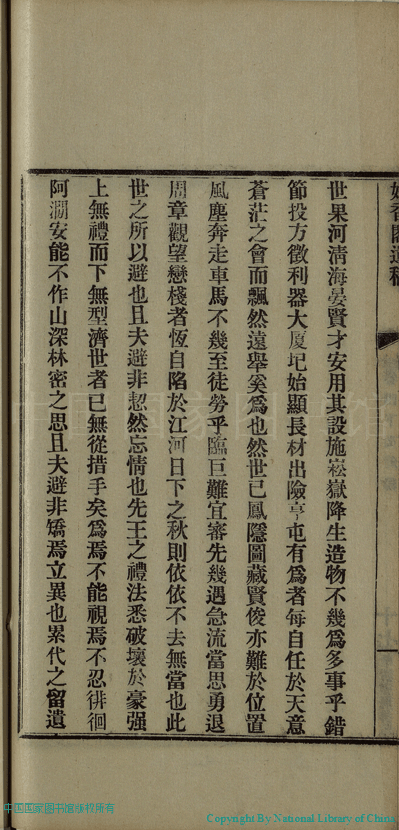 世果河清海晏賢才安用其設施崧嶽降生造物不幾爲多事乎錯
節投方徵利器大廈圮始顯長材出險亨屯有爲者每自任於天意
蒼茫之會而飄然遠舉奚爲也然世已鳳隱圖藏賢俊亦難於位置
風塵奔走車馬不幾至徒勞乎臨巨難宜審先幾遇急流當思勇退
周章觀望戀棧者恆自陷於江河日下之秋則依依不去無當也此
世之所以避也且夫避非恝然忘情也先王之禮法悉破壞於豪强
上無禮而下無型濟世者已無從措手矣爲焉不能視焉不忍徘徊
阿澗安能不作山深林密之思且夫避非矯焉立異也累代之留遺
中国国家图书馆版权所有
Copyright By National Library of China